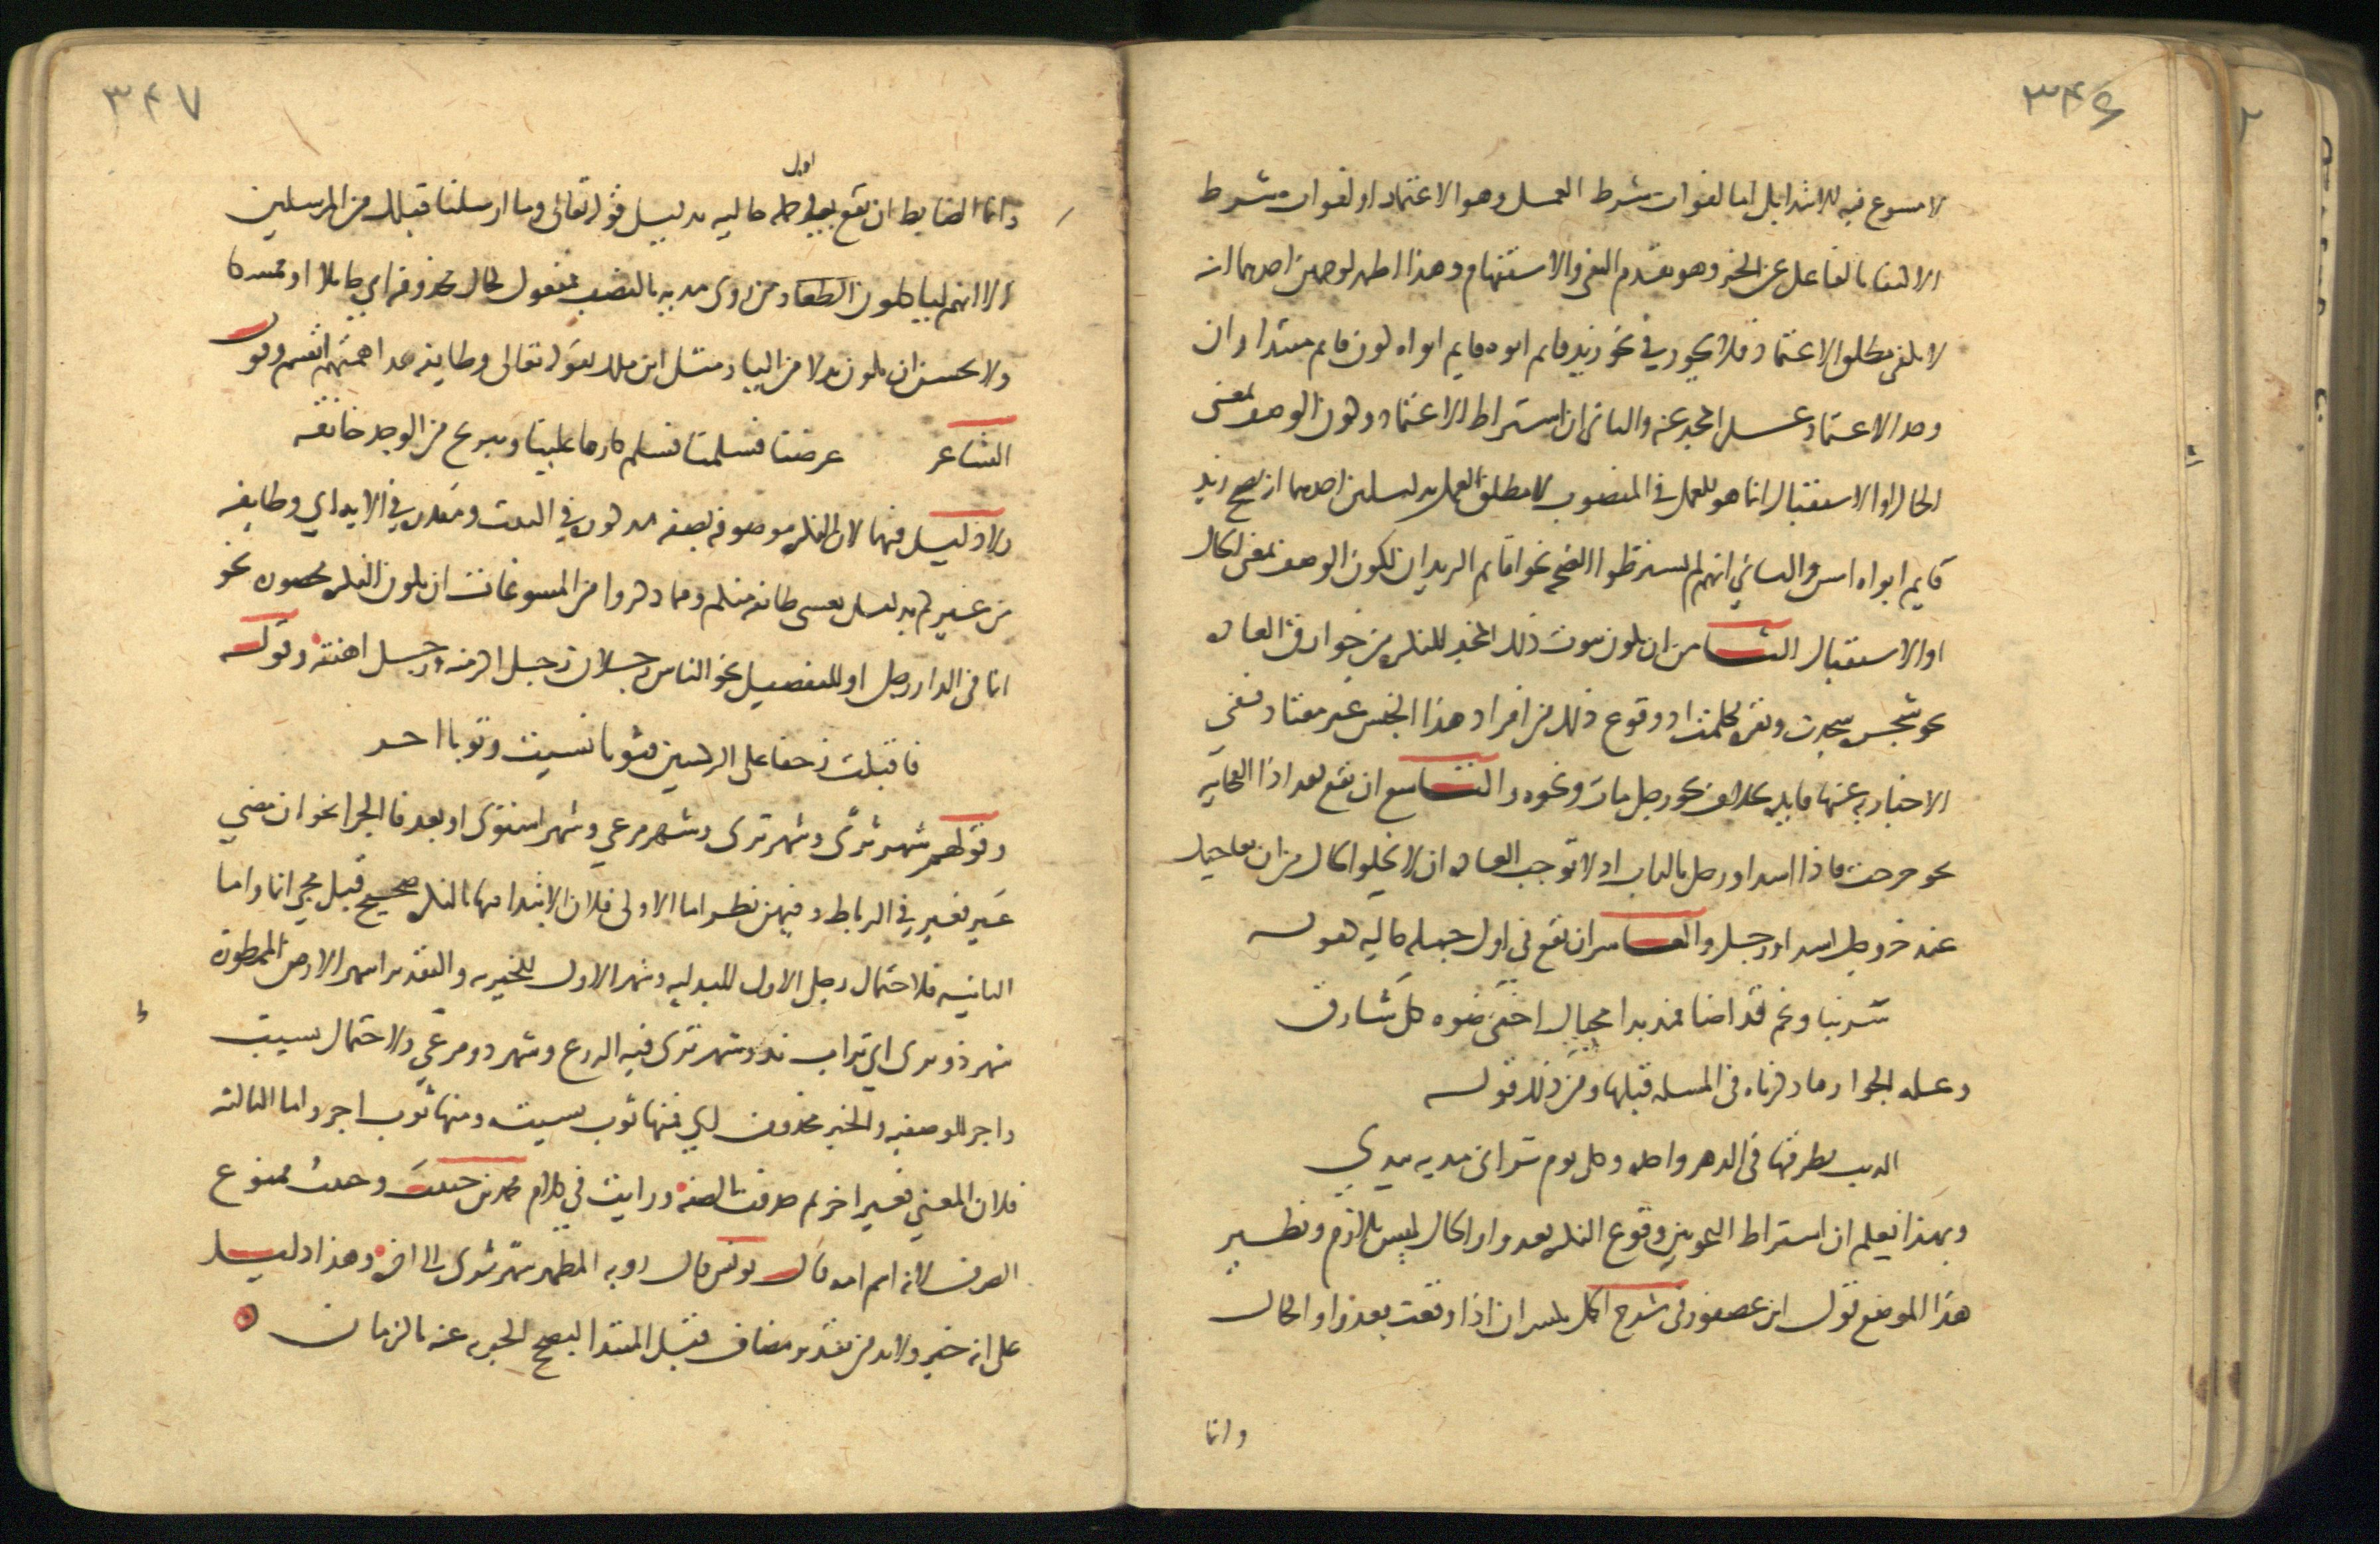 ٣٤٦
لا مسوغ فيه للابتدا بل اما لفوات شرط العمل وهو الاعتماد او لفوات شرط
الاكتفا بالفاعل عن الخبر وهو تقدم النفي والاستفهام وهذا اظهر لوجهين احدهما انه
لا يكفي مطلق الاعتماد فلا يجوز في نحو زيد قايم ابوه قايم ابواه كون قايم مبتدا وان
وجد الاعتماد على المخبر عنه والثاني ان اشتراط الاعتماد وكون الوصف بمعنى
الحال او الاستقبال انما هو للعمل في المنصوب لا مطلق العمل بدليلين احدهما انه يصح زيد
قايم ابواه امس والثاني انهم لم يشترطوا لصحة نحو اقايم الزيدان كون الوصف بمعنى الحال
او الاستقبال الثامن ان يكون ثبوت ذلك الخبر للنكرة من خوارق العادة
نحو شجرة سجدت وبقرة تكلمت اذ وقوع ذلك من افراد هذا الجنس غير معتاد ففي
الاخبار به عنها فايدة بخلاف نحو رجل مات ونحوه والتاسع ان تقع بعد اذا الفجاية
نحو خرجت فاذا اسد او رجل بالباب اذ لا توجب العادة ان لا يخلو الحال من ان يفاجيك
عند خروجك اسد او رجل والعاشر ان تقع في اول جملة حالية كقوله
سرينا ونجم قد اضا فمذ بدا محياك اخفى ضوه كل شارق
وعلة الجواز ما ذكرناه في المسلة قبلها ومن ذلك قوله
الذيب يطرقها في الدهر واحدة وكل يوم تراني مدية بيدي
وبهذا يعلم ان اشتراط النحويين وقوع النكرة بعد واو الحال ليس بلازم ونظير
هذا الموضع قول ابن عصفور في شرح الجمل تكسر ان اذا وقعت بعد واو الحال
وانما
٣٤٧
وانما الضابط ان تقع في اول جملة حالية بدليل قوله تعالى وما ارسلنا قبلك من المرسلين
الا انهم لياكلون الطعام ومن روى مدية بالنصب فمفعول لحال محذوفة اي حاملا او ممسكا
ولا يحسن ان يكون بدلا من الياء ومثل ابن مالك بقوله تعالى وطايفة قد اهمتهم انفسهم وقول
الشاعر عرضنا فسلمنا فسلم كارها علينا وتبريح من الوجد خانقه
ولا دليل فيهما لان النكرة موصوفة بصفة مذكورة في البيت ومقدرة في الاية اي وطايفة
من غيركم بدليل يغشى طايفة منكم ومما ذكروا من المسوغات ان يكون النكرة محصورة نحو
انما في الدار رجل او للتفصيل نحو الناس رجلان رجل اكرمته ورجل اهنته وقوله
فاقبلت زحفا على الركبتين فثوبا نسيت وثوبا اجر
وقولهم شهر ثرى وشهر ترى وشهر مرعى وشهر استوى او بعد فا الجزا نحو ان مضى
عير فعير في الرباط وفيهن نظر اما الاولى فلان الابتدا فيها بالنكرة صحيح قبل مجي انما واما
الثانية فلاحتمال رجل الاول للبدلية وشهر الاول للخبرية والتقدير اشهر الارض الممطورة
شهر ذو ثرى اي تراب ند وشهر ترى فيه الزرع وشهر ذو مرعى ولاحتمال نسيت
واجر للوصفية والخبر محذوف اي فمنها ثوب نسيت ومنها ثوب اجر واما الثالثة
فلان المعنى فعير اخر ثم حذفت الصفة ورايت في كلام محمد بن حبيب وحبيب ممنوع
الصرف لانه اسم امه قال يونس قال روبة المطهر شهر ثرى الى اخره وهذا دليل
على انه خبر ولا بد من تقدير مضاف قبل المبتدا ليصح الخبر عنه بالزمان